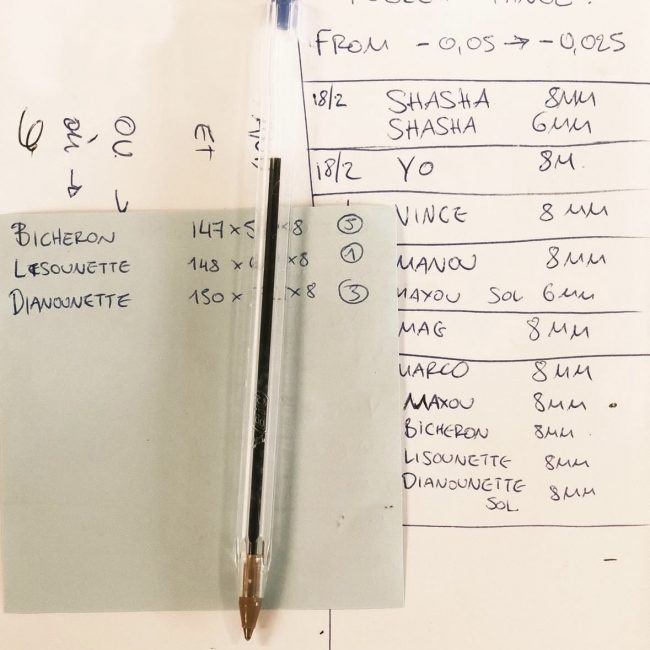 FROM - 0,05 → - 0,025
18/2 SHASHA 8MM
SHASHA 6MM
18/2 YO 8M.
VINCE 8MM
MANOU 8MM
MAXOU SOL 6MM
MAG 8MM
MARCO 8MM
MAXOU 8MM
BICHERON 8MM
LISOUNETTE 8MM
DIANOUNETTE 8MM
SOL
BICHERON 147 × 5 8 5
LISOUNETTE 148 × ×8 1
DIANOUNETTE 150 × ×8 3
OU →
où →
ET